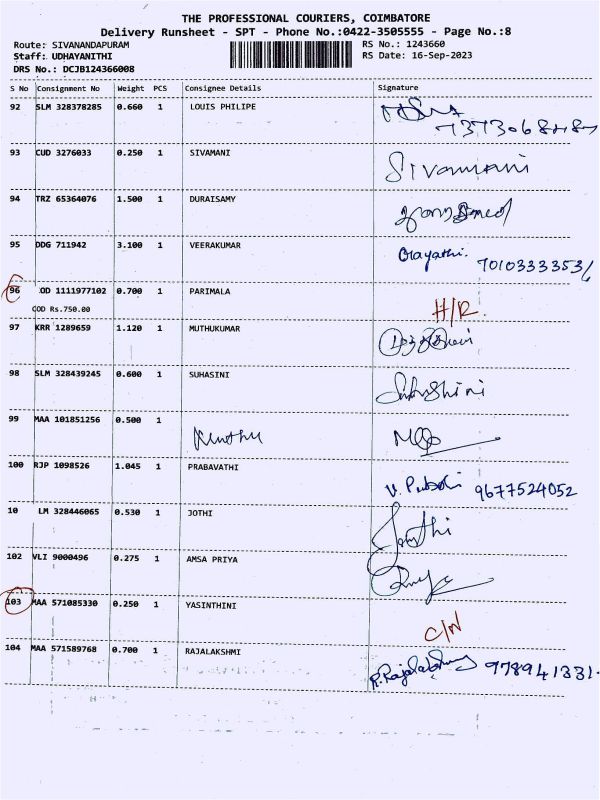 THE PROFESSIONAL COURIERS, COIMBATORE
Delivery Runsheet - SPT - Phone No.:0422-3505555 - Page No.:8
Route: SIVANANDAPURAM RS No.: 1243660
Staff: UDHAYANITHI RS Date: 16-Sep-2023
DRS No.: DCJB124366008
S No Consignment No Weight PCS Consignee Details Signature
92 SLM 328378285 0.660 1 LOUIS PHILIPE
93 CUD 3276033 0.250 1 SIVAMANI Sivamani
94 TRZ 65364076 1.500 1 DURAISAMY
95 DDG 711942 3.100 1 VEERAKUMAR Gayathi.
96 OD 1111977102 0.700 1 PARIMALA H/R
COD Rs.750.00
97 KRR 1289659 1.120 1 MUTHUKUMAR
98 SLM 328439245 0.600 1 SUHASINI
99 MAA 101851256 0.500 1 Muthu
100 RJP 1098526 1.045 1 PRABAVATHI 9677524052
10 LM 328446065 0.530 1 JOTHI Jothi
102 VLI 9000496 0.275 1 AMSA PRIYA
103 MAA 571085330 0.250 1 YASINTHINI C/N
104 MAA 571589768 0.700 1 RAJALAKSHMI R. Rajalakshmy 978941331